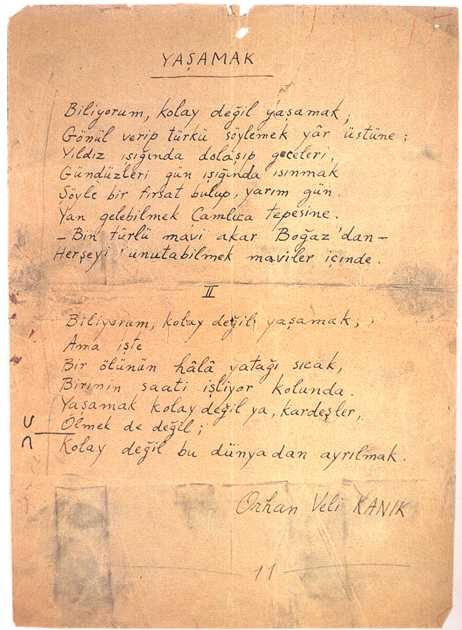 YAŞAMAK
Biliyorum, kolay değil yaşamak,
Gönül verip türkü söylemek yâr üstüne;
Yıldız ışığında dolaşıp geceleri,
Gündüzleri gün ışığında ısınmak
Şöyle bir fırsat bulup, yarım gün.
Yan gelebilmek Çamlıca tepesine.
- Bin türlü mavi akar Boğaz'dan -
Herşeyi unutabilmek maviler içinde.
II
Biliyorum, kolay değil yaşamak;
Ama işte
Bir ölünün hâlâ yatağı sıcak,
Birinin saati işliyor kolunda.
Yaşamak kolay değil ya, kardeşler,
Ölmek de değil;
Kolay değil bu dünyadan ayrılmak.
Orhan Veli KANIK
11